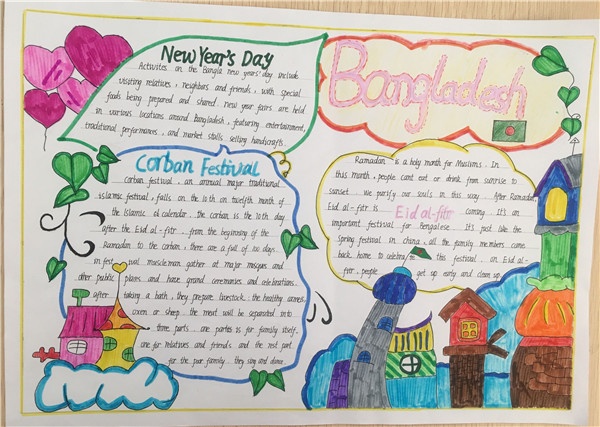 New Year's Day
Activites on the Bangla new years' day include
visiting relatives, neighbors and friends, with special
foods being prepared and shared. new year fairs are held
in various locations around Bangladesh, featuring entertainment,
traditional performances, and market stalls selling handicrafts.
Bangladesh
Corban Festival
Corban festival, an annual major traditional
islamic festival, falls on the 10 th on twelfth month of
the Islamic al calendar. the corban is the 10 th day
after the Eid al-fitr. from the beginning of the
Ramadan to the corban, there are a full of 100 days.
in festival muscleman gather at major mosques and
other public places and have grand ceremonies and celebrations.
after taking a bath, they prepare livestock. the healthy camels
oxen or sheep. the meat will be separated in to
three parts. one parties is for family itself.
one for relatives and friends and the rest part
for the poor family. they sing and dance.
Ramadan is a holy month for Muslims. In
this month, people cant eat or drink from sunrise to
sunset. we purify our souls in this way. After Ramadan,
Eid al-fitr is coming. It's an
Eid al-fitr
important festival for Bengalese. It's just like the
spring festival in china, all the family members come
back home to celebrate this festival. on Eid al-
fitr, people get up early and clean up